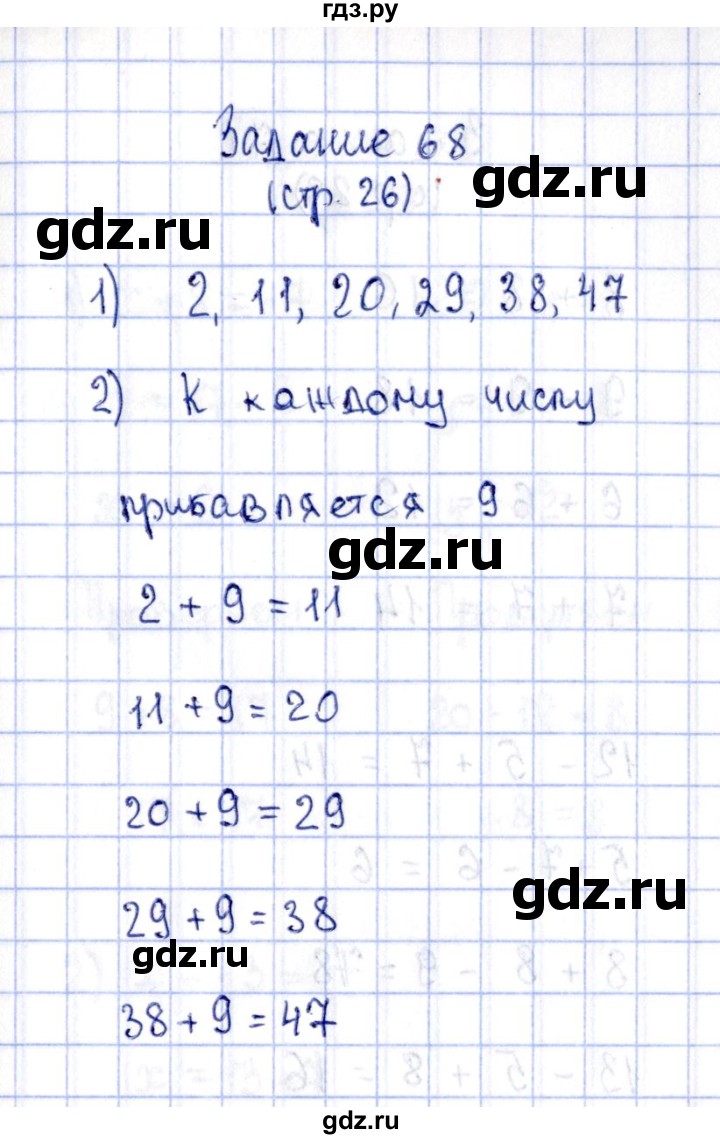 гдз.ру
Задание 68
(стр. 26)
gdz.ru
gdz.ru
1) 2, 11, 20, 29, 38, 47
2) К каждому числу
прибавляется 9
gdz.ru
2 + 9 = 11
11 + 9 = 20
20 + 9 = 29
gdz.ru
29 + 9 = 38
gdz.ru
38 + 9 = 47
gdz.ru